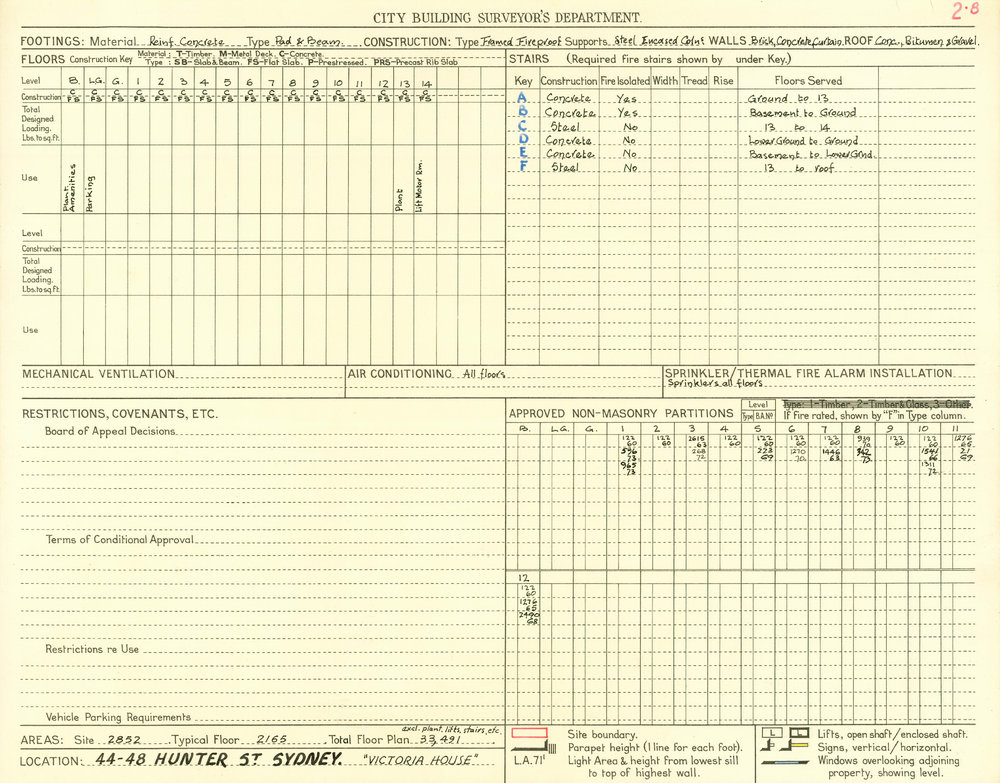 CITY BUILDING SURVEYOR'S DEPARTMENT.
2·8
FOOTINGS: Material Reinf. Concrete Type Pad & Beam. CONSTRUCTION: Type Framed Fireproof Supports Steel Encased Colns WALLS Brick, Concrete, Curtain, ROOF Conc., Bitumen & Gravel.
FLOORS Construction Key Material: T-Timber. M-Metal Deck. C-Concrete.
Type: SB-Slab & Beam. FS-Flat Slab. P-Prestressed. PRS-Precast Rib Slab
Level B. LG. G. 1 2 3 4 5 6 7 8 9 10 11 12 13 14
Construction C C C C C C C C C C C C C C C C C
FS FS FS FS FS FS FS FS FS FS FS FS FS FS FS FS FS
Total
Designed
Loading.
Lbs. to sq. ft.
Use
Plant.
Amenities
Parking
Plant
Lift Motor Rm.
Level
Construction
Total
Designed
Loading.
Lbs. to sq. ft.
Use
STAIRS (Required fire stairs shown by under Key.)
Key Construction Fire Isolated Width Tread Rise Floors Served
A Concrete Yes Ground to 13
B Concrete Yes Basement to Ground
C Steel No 13 to 14
D Concrete No Lower Ground to Ground
E Concrete No Basement to Lower Grnd.
F Steel No 13 to roof
MECHANICAL VENTILATION
AIR CONDITIONING All floors
SPRINKLER/THERMAL FIRE ALARM INSTALLATION
Sprinklers all floors
RESTRICTIONS, COVENANTS, ETC.
Board of Appeal Decisions
Terms of Conditional Approval
Restrictions re Use
Vehicle Parking Requirements
APPROVED NON-MASONRY PARTITIONS
Level
Type B.A. Nº
Type: 1-Timber, 2-Timber & Glass, 3-Other.
If Fire rated, shown by "F" in Type column.
B. LG. G. 1 2 3 4 5 6 7 8 9 10 11
122 122 2615 122 122 122 122 939 122 122 1276
60 60 63 60 60 60 60 70 60 60 65
596 268 223 1270 1446 342 1541 21
73 72 69 70 63 73 66 69
965 1311
73 72
12
122
60
1276
65
2490
68
AREAS: Site 2852 Typical Floor 2165 Total Floor Plan excl. plant, lifts, stairs, etc. 33,491
LOCATION: 44-48 HUNTER ST SYDNEY. "VICTORIA HOUSE"
Site boundary.
Parapet height (1 line for each foot).
L.A. 71' Light Area & height from lowest sill
to top of highest wall.
L L Lifts, open shaft/enclosed shaft.
P Signs, vertical/horizontal.
Windows overlooking adjoining
property, showing level.